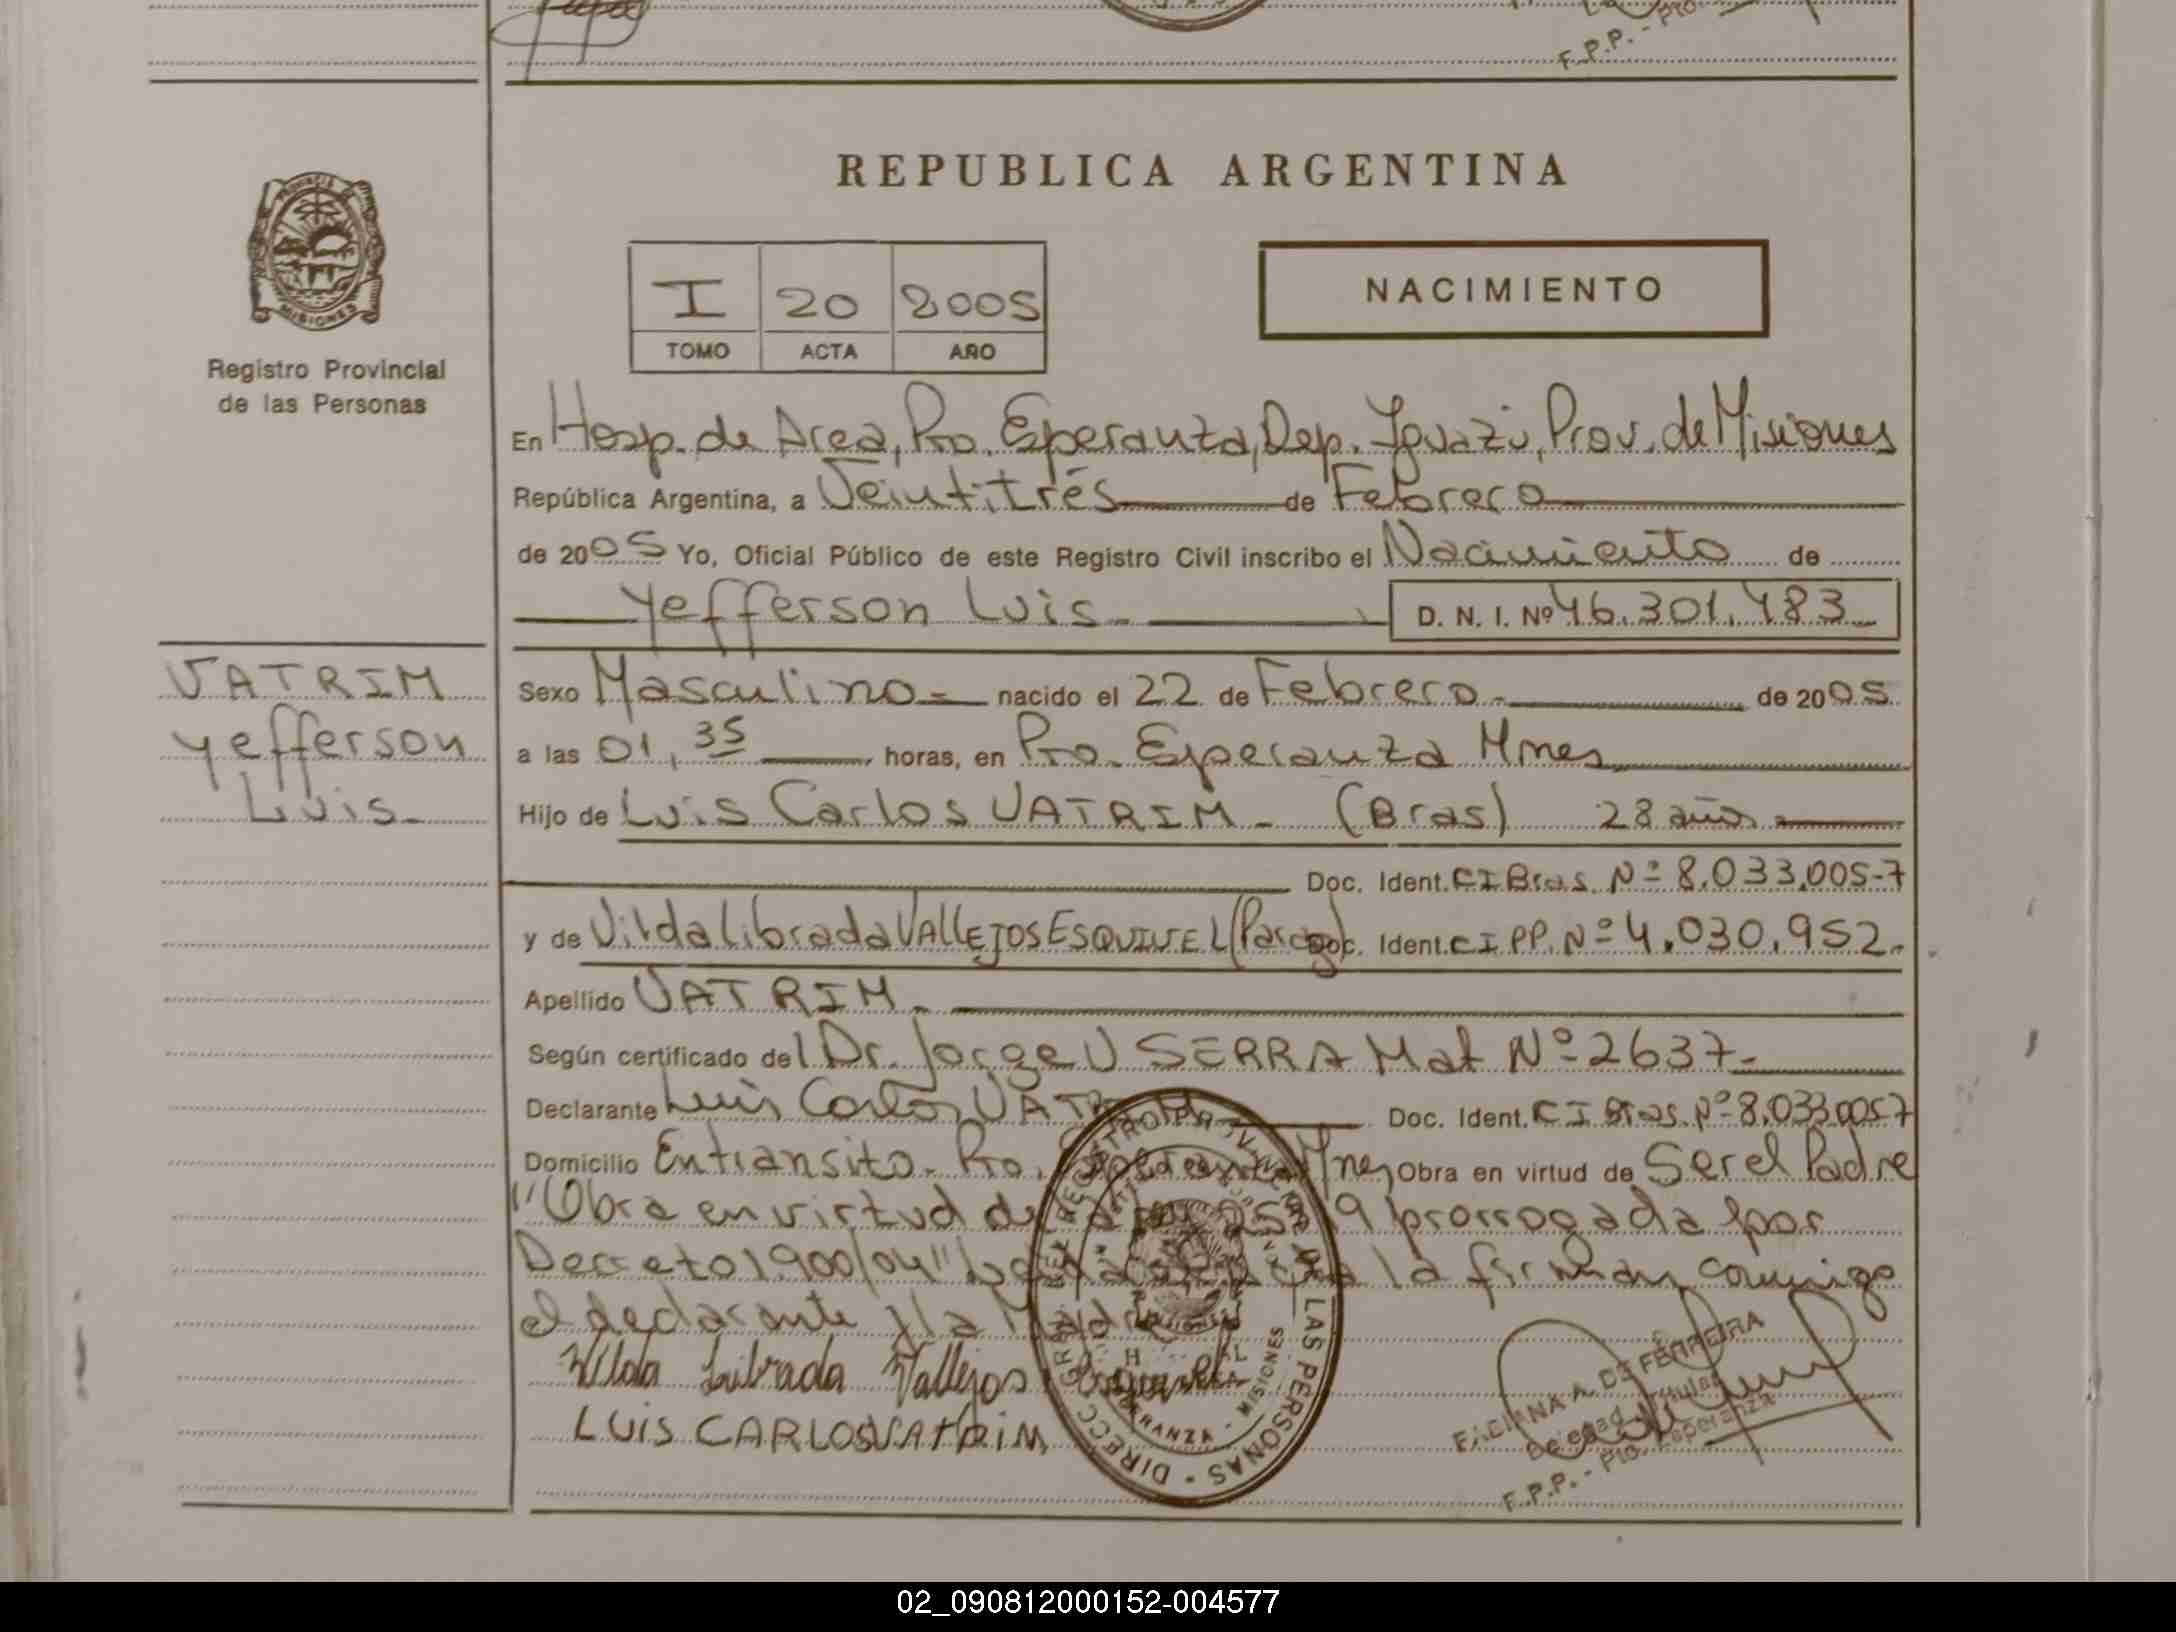 REPUBLICA ARGENTINA
I 20 2005
TOMO ACTA AÑO
NACIMIENTO
MISIONES
Registro Provincial
de las Personas
En Hosp. de Area, Pto. Esperanza, Dep. Iguazú, Prov. de Misiones
República Argentina, a Veintitrés de Febrero
de 2005 Yo, Oficial Público de este Registro Civil inscribo el Nacimiento de
Yefferson Luis.- D. N. I. Nº 46.301.483
VATRIM
Yefferson
Luis-
Sexo Masculino.- nacido el 22 de Febrero.- de 2005
a las 01,35 horas, en Pto. Esperanza Mnes
Hijo de Luis Carlos VATRIM - (Bras) 28 años
Doc. Ident. CI Bras. Nº 8.033.005-7
y de Vilda Librada VALLEJOS ESQUIVEL (Parag) Doc. Ident. CI PP. Nº 4.030.952.
Apellido VATRIM -
Según certificado del Dr. Jorge V SERRA Mat Nº 2637-
Declarante Luis Carlos VATRIM Doc. Ident. CI Bras. Nº 8.033.005-7
Domicilio En transito - Pto. Esperanza Mnes Obra en virtud de Ser el Padre
"Obra en virtud de prorrogada por
Decreto 1.900/04" la firman conmigo
el declarante y la Madre
Vilda Librada Vallejos Esquivel
LUIS CARLOS VATRIM
DE FERREIRA
Delegada Titular
F.P.P. - Pto. Esperanza
LAS PERSONAS
MISIONES
F.P.P. - Pto.
02_090812000152-004577